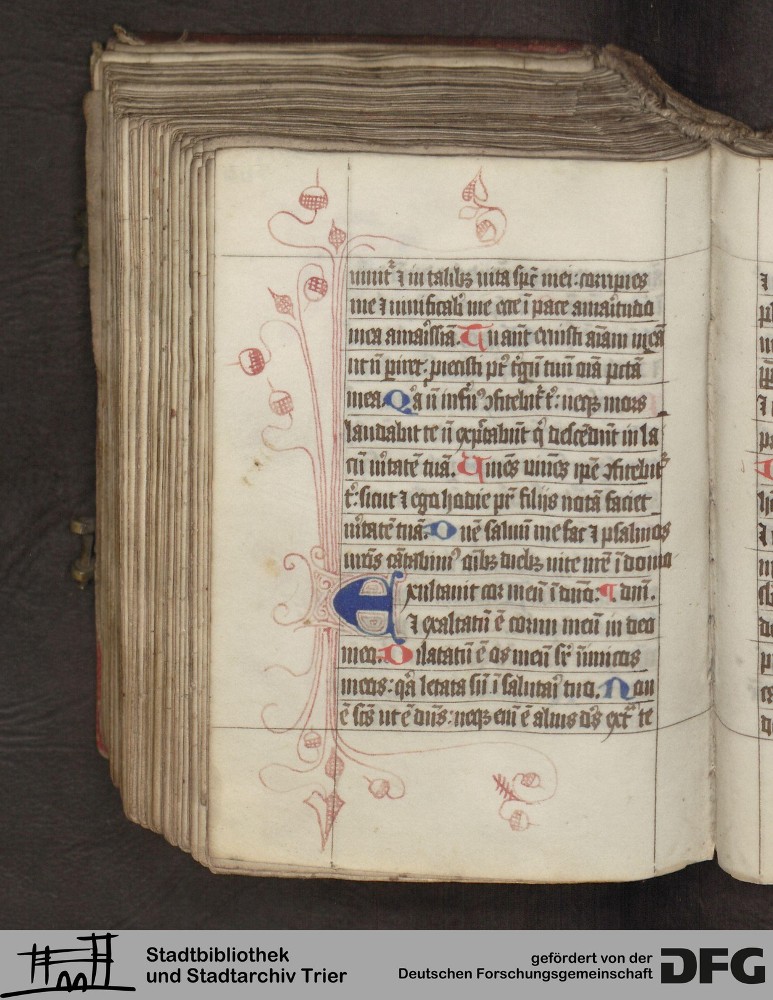 uiuit᷑ ⁊ in talibꝫ uita sp̄c mei: corripies
me ⁊ uiuificab᷑ me ecce ī pace amaritudo
mea amar̄issīa. Tu aut̄ eruisti aīam meā
ut n̄ ꝑiret: ꝓiecisti pꝰ t̄gū tuū oīa pctā
mea. Qͥa n̄ infnꝰ ꝯfitebit᷑ tͥ: neqꝫ mors
laudabit te n̄ exp̄ctabūt qͥ descēdūt in la
cū uͥtatē tuā. Viuēs uiuēs ip̄e ꝯfitebit᷑
tͥ: sicut ⁊ ego hodie pr̄ filijs notā faciet
uͥtatē tuā. Dn̄e saluū me fac ⁊ psalmos
nr̄os cātabimꝰ cūctꝫ diebꝫ uite nr̄e ī domo
Exultauit cor meū ī dn̄o: ¶ dn̄i.
⁊ exaltatū ē cornu meū in deo
meo. Dilatatū ē os meū sͬ inimicos
meos: qͥa letata sū ī salutaͥ tuo. Non
ē scs̄ ut ē dn̄s: neqꝫ enī ē alius d̄s ext᷑ te
Stadtbibliothek
und Stadtarchiv Trier
gefördert von der
Deutschen Forschungsgemeinschaft DFG